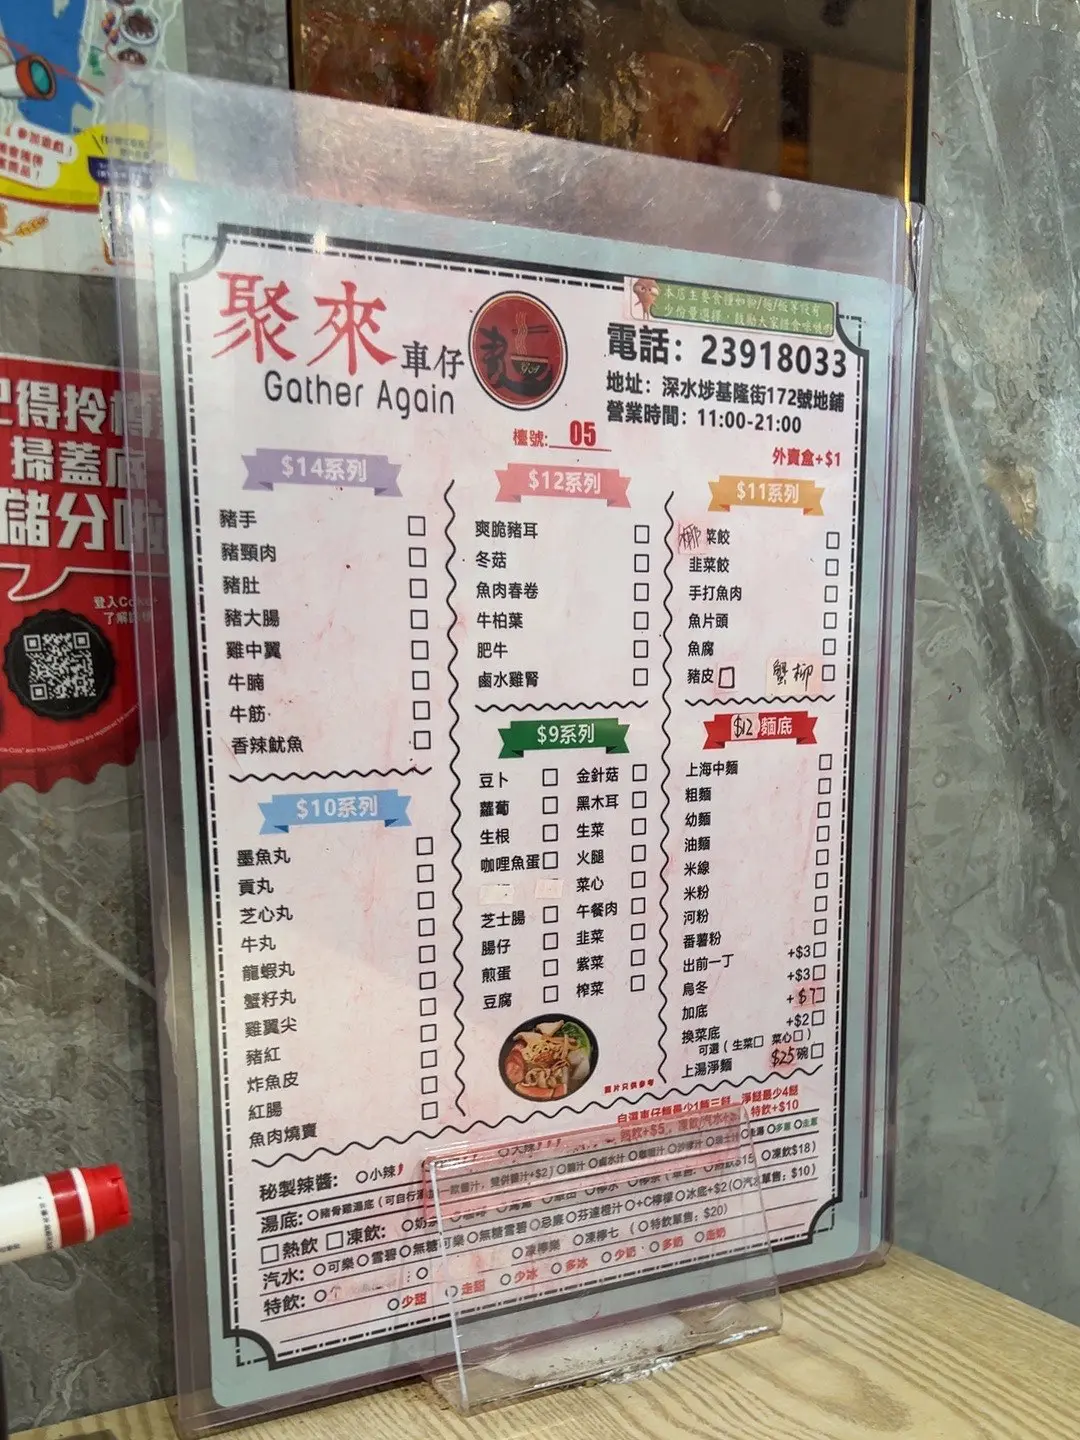 參加遊戲！
本店主要食糧如粉/麵/飯等設有
少份量選擇，鼓勵大家
聚來車仔
Gather Again
電話：23918033
地址：深水埗基隆街172號地鋪
營業時間：11:00-21:00
檯號: 05
外賣盒+$1
得拎
掃蓋底
儲分
登入Co
$14系列
豬手
豬頸肉
豬肚
豬大腸
雞中翼
牛腩
牛筋
香辣魷魚
$12系列
爽脆豬耳
冬菇
魚肉春卷
牛柏葉
肥牛
鹵水雞腎
$11系列
椰菜餃
韭菜餃
手打魚肉
魚片頭
魚腐
豬皮 蟹柳
$10系列
墨魚丸
貢丸
芝心丸
牛丸
龍蝦丸
蟹籽丸
雞翼尖
豬紅
炸魚皮
紅腸
魚肉燒賣
$9系列
豆卜 金針菇
蘿蔔 黑木耳
生根 生菜
咖哩魚蛋 火腿
菜心
芝士腸 午餐肉
腸仔 韭菜
煎蛋 紫菜
豆腐 榨菜
圖片只供參考
$12 麵底
上海中麵
粗麵
幼麵
油麵
米線
米粉
河粉
番薯粉
出前一丁 +$3
烏冬 +$3
加底 +$7
換菜底 +$2
可選（生菜 菜心）
上湯淨麵 $25碗
自選車仔麵最少1麵三餸，淨餸最少4餸
熱飲+$5，凍飲/汽水+ 特飲+$10
秘製辣醬： 小辣 大辣
湯底： 豬骨雞湯底（可自行 一款醬汁，雙併醬汁+$2） 鹵水汁 走蔥
熱飲 凍飲： 奶茶 檸水 檸茶 $15 凍飲$18）
汽水： 可樂 雪碧 無糖可樂 無糖雪碧 忌廉 芬達橙汁 +C檸檬 冰底+$2（汽水單售：$10）
特飲： 凍檸樂 凍檸七 （特飲單售：$20）
少甜 走甜 少冰 多冰 少奶 多奶 走奶